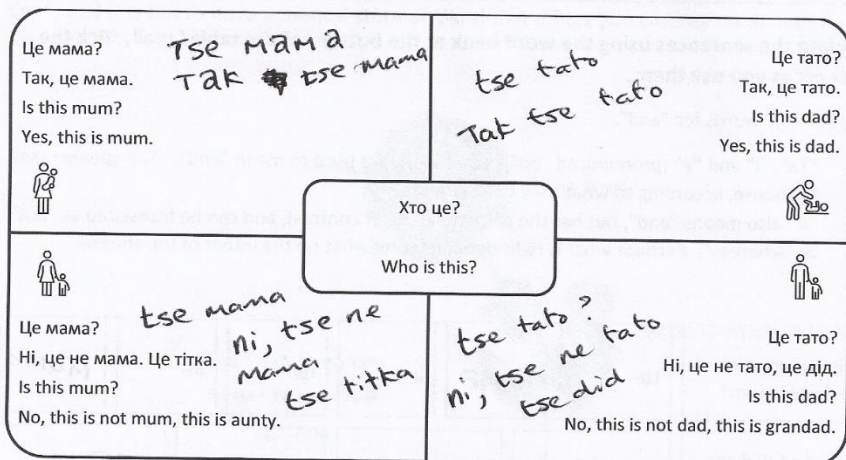 Це мама?
Так, це мама.
Is this mum?
Yes, this is mum.
Tse мама
Так tse mama
tse tato
Tak tse tato
Це тато?
Так, це тато.
Is this dad?
Yes, this is dad.
Хто це?
Who is this?
Це мама?
Ні, це не мама. Це тітка.
Is this mum?
No, this is not mum, this is aunty.
tse mama
ni, tse ne
mama
tse titka
tse tato?
ni, tse ne tato
tse did
Це тато?
Ні, це не тато, це дід.
Is this dad?
No, this is not dad, this is grandad.